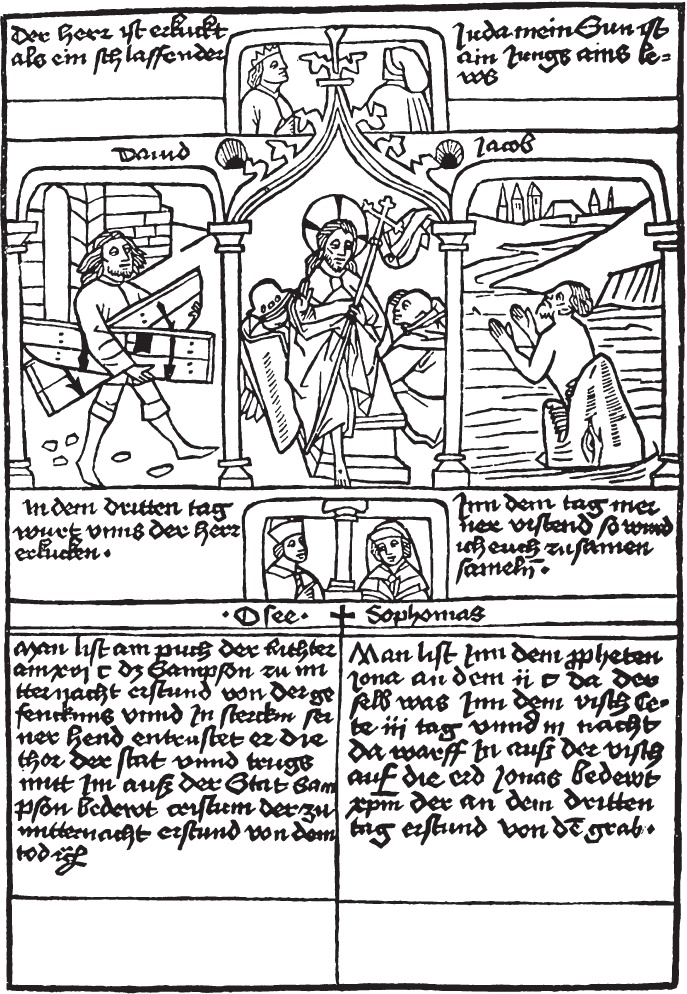 Der Herr ist erkuckt
als ein schlaffender
Juda mein Sun ist
ain Jungs ains le=
ws
Dauid
Jacob
In dem dritten tag
wurt vnns der herr
erkucken.
Inn dem tag mei
ner vistend so wurd
ich euch zu samen
samelñ.
Osee.
Sophonias
Man list am puch der Richter
am xvj c dz Sampson zu mi
tternacht erstund von der ge
fencknus vnnd In stercken sei
ner hend entrustet er die
thor der stat vnnd trugs
mitt Im auß der Stat Sam
pson bedewt cristum der zu
mitternacht erstund von dem
tod
Man list Inn dem ppheten
Jona an dem ij c da der
selb was Inn dem visch Ce=
te iij tag vnnd iij nacht
da warff In auß der visch
auf die erd Jonas bedewt
xpm̄ der an dem dritten
tag erstund von dē grab.